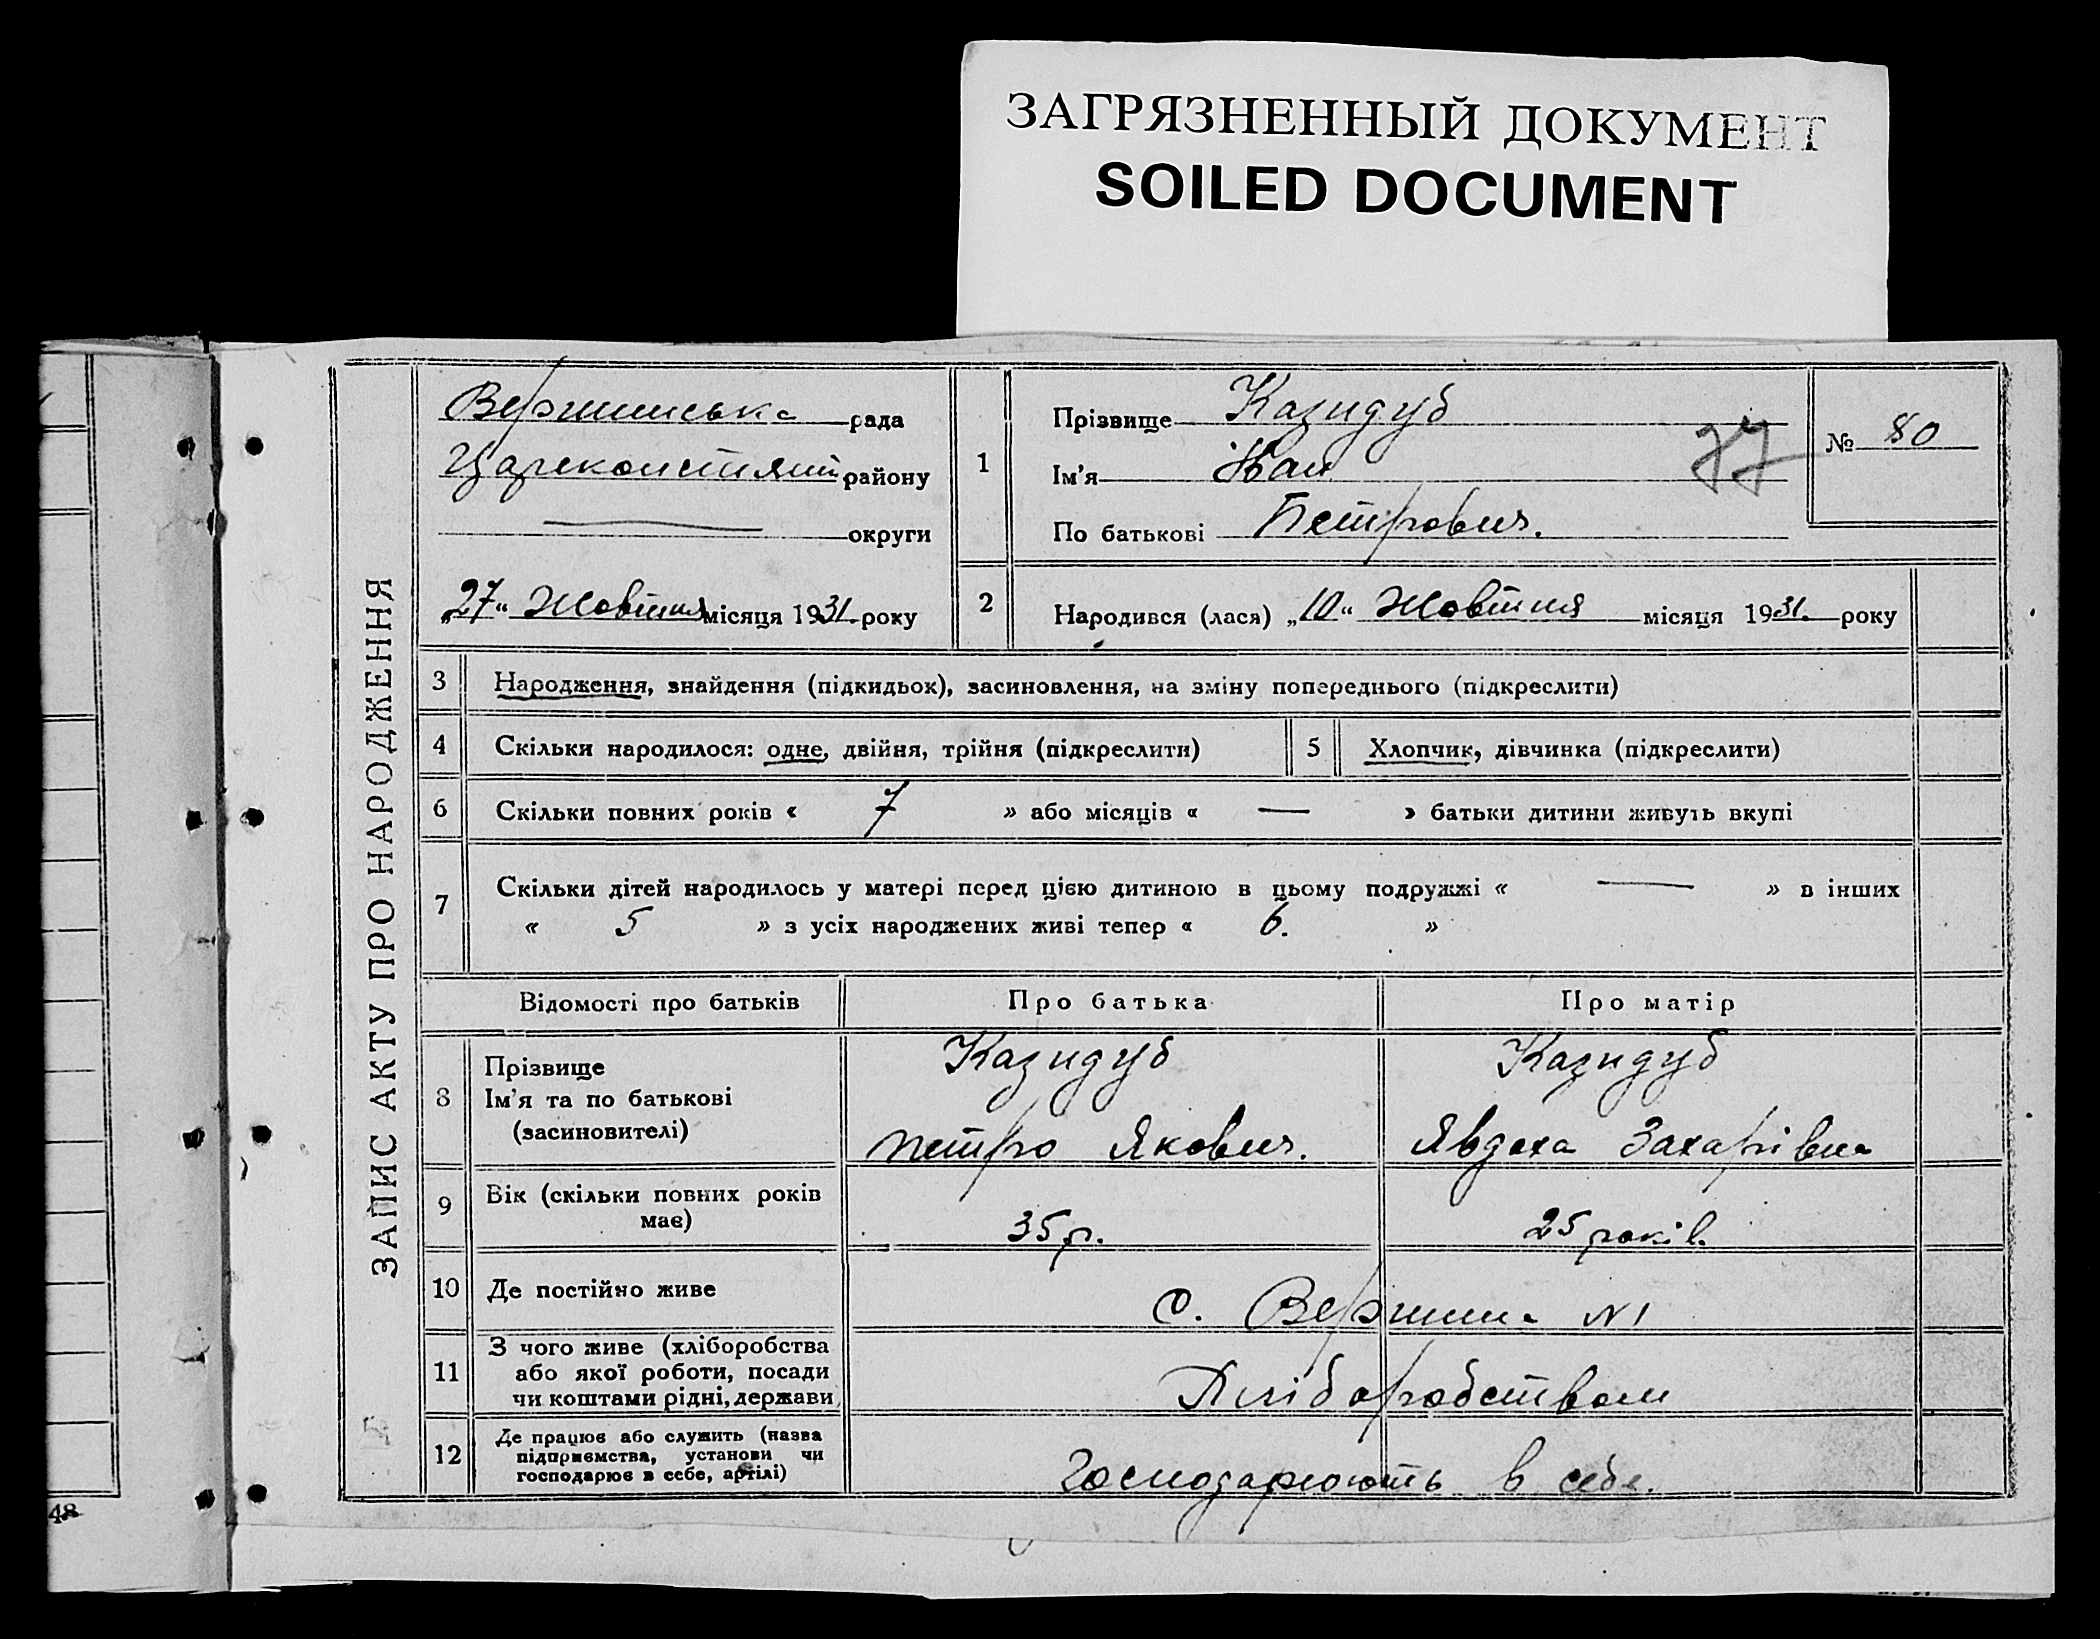 ЗАГРЯЗНЕННЫЙ ДОКУМЕНТ
SOILED DOCUMENT
ЗАПИС АКТУ ПРО НАРОДЖЕННЯ
Вершинська рада
району
округи
„27“ Жовтня місяця 1931. року
1
Прізвище Казидуб
Ім'я Іван
По батькові Петрович.
77
№ 80
2
Народився (лася) „10“ Жовтня місяця 1931. року
3 Народження, знайдення (підкидьок), засиновлення, на зміну попереднього (підкреслити)
4 Скільки народилося: одне, двійня, трійня (підкреслити) 5 Хлопчик, дівчинка (підкреслити)
6 Скільки повних років « 7 » або місяців « — » батьки дитини живуть вкупі
7 Скільки дітей народилось у матері перед цією дитиною в цьому подружжі « — » в інших
« 5 » з усіх народжених живі тепер « 6. »
Відомості про батьків Про батька Про матір
8 Прізвище
Ім'я та по батькові
(засиновителі)
Казидуб
Петро Якович.
Казидуб
Явдоха Захарівна
9 Вік (скільки повних років
має)
35 р.
25 років.
10 Де постійно живе
с. Вершина №1
11 З чого живе (хліборобства
або якої роботи, посади
чи коштами рідні, держави
Хліборобством
12 Де працює або служить (назва
підприємства, установи чи
господарює в себе, артілі)
Господарюють в себе.
48